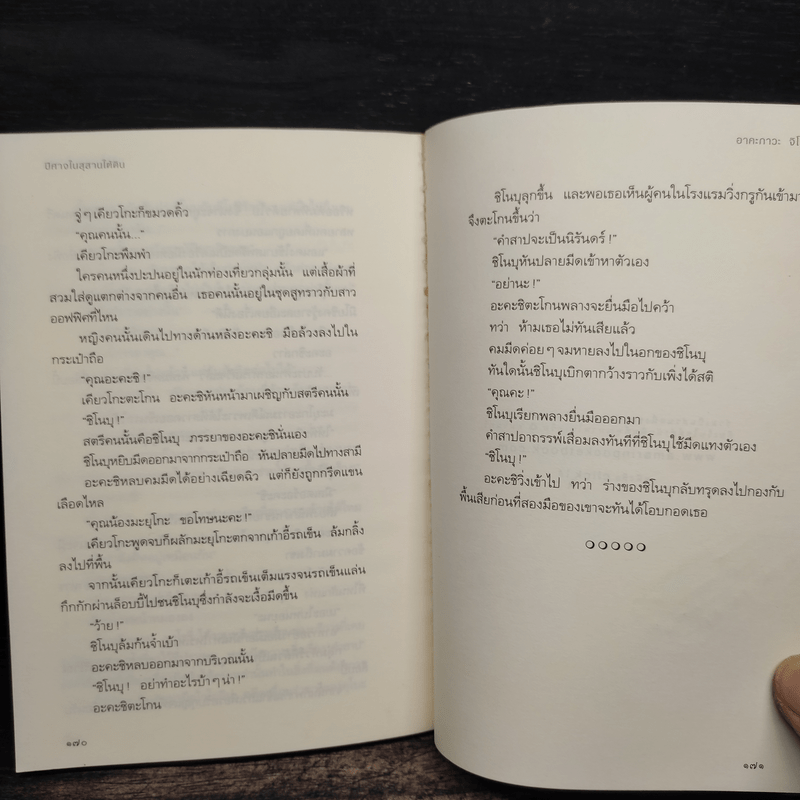 ปีศาจในสุสานใต้ดิน
จู่ ๆ เคียวโกะก็ขมวดคิ้ว
“คุณคนนั้น...”
เคียวโกะพึมพำ
ใครคนหนึ่งปะปนอยู่ในนักท่องเที่ยวกลุ่มนั้น แต่เสื้อผ้าที่
สวมใส่ดูแตกต่างจากคนอื่น เธอคนนั้นอยู่ในชุดสูทราวกับสาว
ออฟฟิศที่ไหน
หญิงคนนั้นเดินไปทางด้านหลังอะคะชิ มือล้วงลงไปใน
กระเป๋าถือ
“คุณอะคะชิ !”
เคียวโกะตะโกน อะคะชิหันหน้ามาเผชิญกับสตรีคนนั้น
“ชิโนบุ !”
สตรีคนนั้นคือชิโนบุ ภรรยาของอะคะชินั่นเอง
ชิโนบุหยิบมีดออกมาจากกระเป๋าถือ หันปลายมีดไปทางสามี
อะคะชิหลบคมมีดได้อย่างเฉียดฉิว แต่ก็ยังถูกกรีดแขน
เลือดไหล
“คุณน้องมะยุโกะ ขอโทษนะคะ !”
เคียวโกะพูดจบก็ผลักมะยุโกะตกจากเก้าอี้รถเข็น ล้มกลิ้ง
ลงไปที่พื้น
จากนั้นเคียวโกะก็เตะเก้าอี้รถเข็นเต็มแรงจนรถเข็นแล่น
กึกกักผ่านล็อบบี้ไปชนชิโนบุซึ่งกำลังจะเงื้อมีดขึ้น
“ว้าย !”
ชิโนบุล้มก้นจ้ำเบ้า
อะคะชิหลบออกมาจากบริเวณนั้น
“ชิโนบุ ! อย่าทำอะไรบ้า ๆ น่า !”
อะคะชิตะโกน
๑๗๐
อาคะกาวะ จิโ
ชิโนบุลุกขึ้น และพอเธอเห็นผู้คนในโรงแรมวิ่งกรูกันเข้ามา
จึงตะโกนขึ้นว่า
“คำสาปจะเป็นนิรันดร์ !”
ชิโนบุหันปลายมีดเข้าหาตัวเอง
“อย่านะ !”
อะคะชิตะโกนพลางจะยื่นมือไปคว้า
ทว่า ห้ามเธอไม่ทันเสียแล้ว
คมมีดค่อย ๆ จมหายลงไปในอกของชิโนบุ
ทันใดนั้นชิโนบุเบิกตากว้างราวกับเพิ่งได้สติ
“คุณคะ !”
ชิโนบุเรียกพลางยื่นมือออกมา
คำสาปอาถรรพ์เสื่อมลงทันทีที่ชิโนบุใช้มีดแทงตัวเอง
“ชิโนบุ !”
อะคะชิวิ่งเข้าไป ทว่า ร่างของชิโนบุกลับทรุดลงไปกองกับ
พื้นเสียก่อนที่สองมือของเขาจะทันได้โอบกอดเธอ
๑๗๑